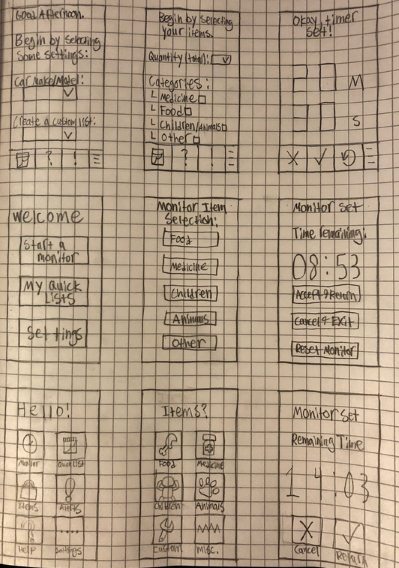 Good Afternoon.
Begin by selecting
some settings:
Car Make/Model:
Create a custom list:
? !
Begin by selecting
your items.
Quantity (total):
Categories:
Medicine
Food
Children/Animals
Other
? !
Okay, timer
set!
M
S
Welcome
Start a
monitor
My Quick
Lists
Settings
Monitor Item
Selection:
Food
Medicine
Children
Animals
Other
Monitor Set
Time remaining:
08:53
Accept & Return
Cancel & Exit
Reset Monitor
Hello!
Monitor
Quick List
Items
Alerts
Help
Settings
Items?
Food
Medicine
Children
Animals
Custom
Misc.
Monitor Set
Remaining Time
14:03
Cancel
Return